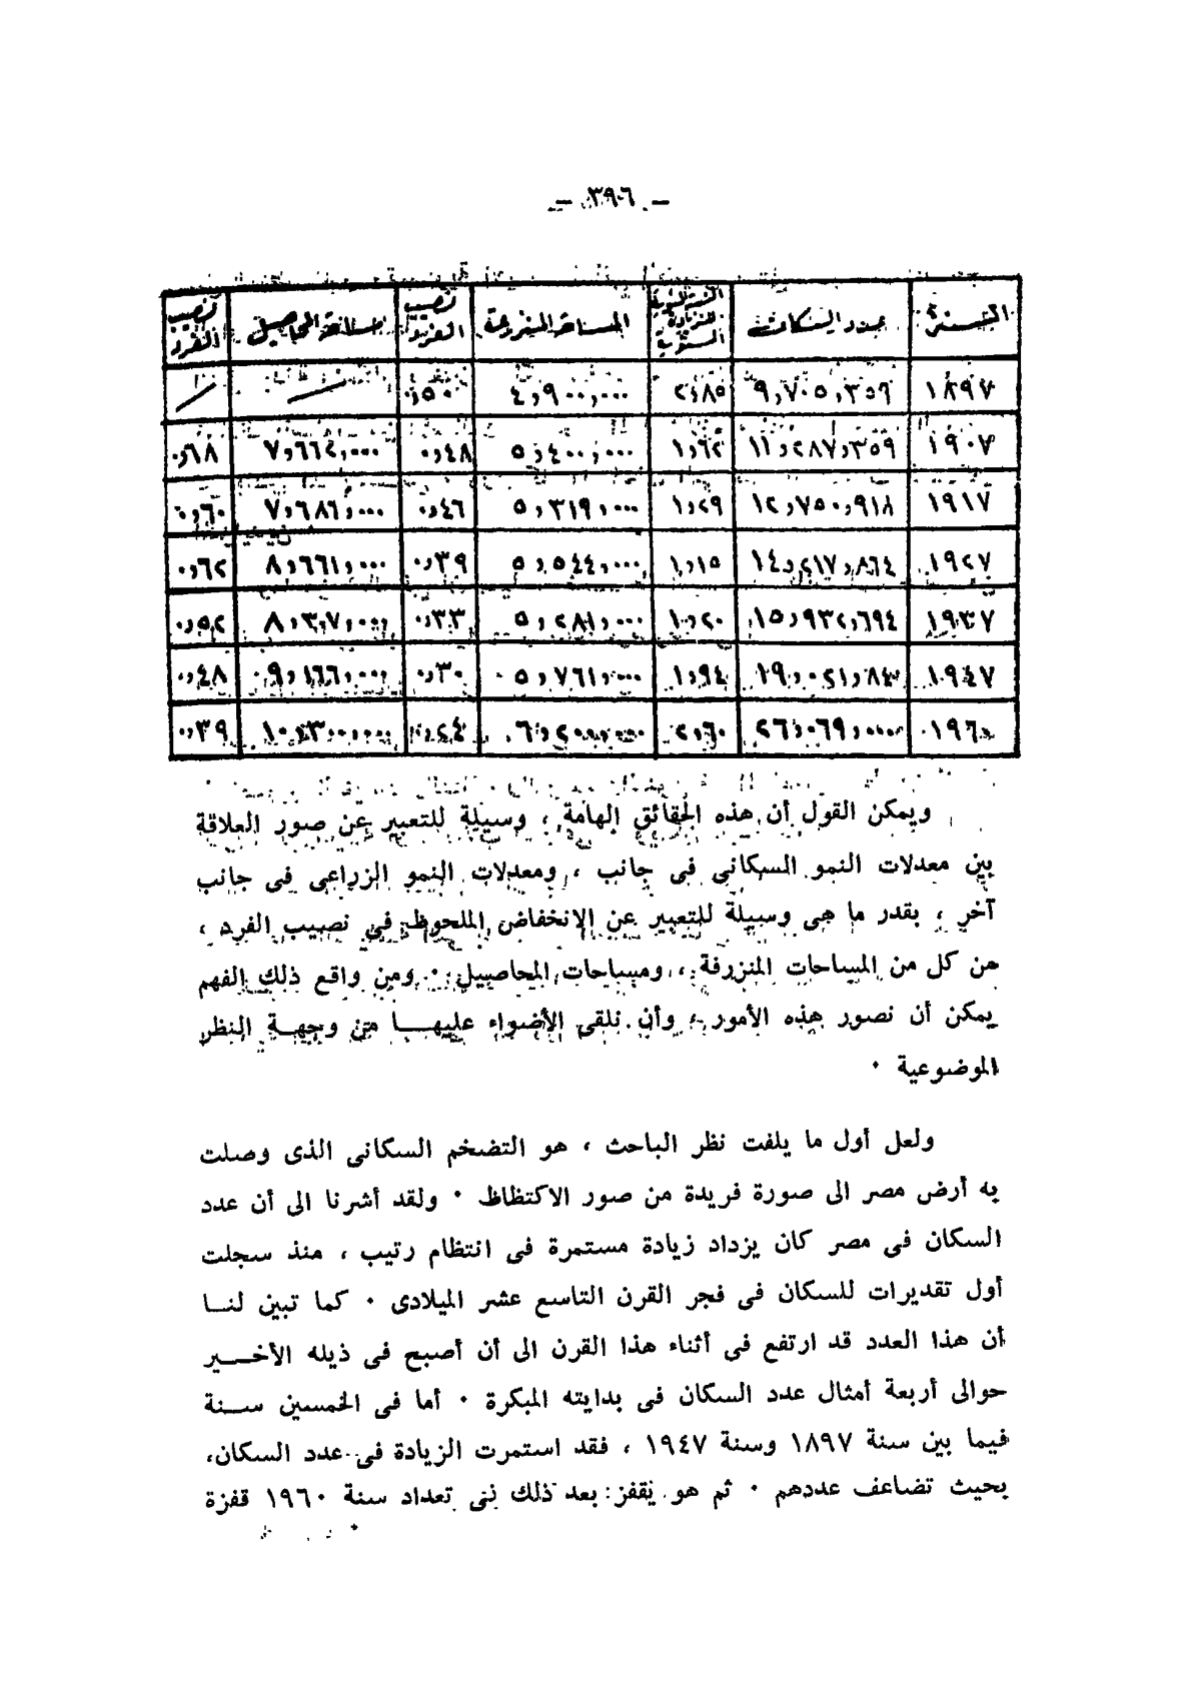 — ٣٩٦ —
السنة عدد السكان النسبة المئوية للزيادة السنوية المساحة المنزرعة نصيب الفرد مساحة المحاصيل نصيب الفرد
١٨٩٧ ٩,٧٠٥,٣٥٩ ٢,٨٥ ٤,٩٠٠,٠٠٠ ٠,٥٠ — —
١٩٠٧ ١١,٢٨٧,٣٥٩ ١,٦٢ ٥,٤٠٠,٠٠٠ ٠,٤٨ ٧,٦٦٢,٠٠٠ ٠,٦٨
١٩١٧ ١٢,٧٥٠,٩١٨ ١,٢٩ ٥,٣١٩,٠٠٠ ٠,٤٦ ٧,٦٨٦,٠٠٠ ٠,٦٠
١٩٢٧ ١٤,٢١٧,٨٦٤ ١,١٥ ٥,٥٤٤,٠٠٠ ٠,٣٩ ٨,٦٦١,٠٠٠ ٠,٦٢
١٩٣٧ ١٥,٩٣٢,٦٩٤ ١,٢٠ ٥,٢٨١,٠٠٠ ٠,٣٣ ٨,٣٠٧,٠٠٠ ٠,٥٢
١٩٤٧ ١٩,٠٢١,٨٤٠ ١,٩٤ ٥,٧٦١,٠٠٠ ٠,٣٠ ٩,١٦٦,٠٠٠ ٠,٤٨
١٩٦٠ ٢٦,٠٦٩,٠٠٠ ٢,٦٠ ٠,٢٤ ٠,٣٩
ويمكن القول أن هذه الحقائق الهامة ، وسيلة للتعبير عن صور العلاقة
بين معدلات النمو السكانى فى جانب ، ومعدلات النمو الزراعى فى جانب
آخر ، بقدر ما هى وسيلة للتعبير عن الانخفاض الملحوظ فى نصيب الفرد ،
من كل من المساحات المنزرفة ، ومساحات المحاصيل ٠ ومن واقع ذلك الفهم
يمكن أن نصور هذه الأمور ، وأن نلقى الأضواء عليهـــا من وجهـة النظر
الموضوعية ٠
ولعل أول ما يلفت نظر الباحث ، هو التضخم السكانى الذى وصلت
به أرض مصر الى صورة فريدة من صور الاكتظاظ ٠ ولقد أشرنا الى أن عدد
السكان فى مصر كان يزداد زيادة مستمرة فى انتظام رتيب ، منذ سجلت
أول تقديرات للسكان فى فجر القرن التاسع عشر الميلادى ٠ كما تبين لنـــا
أن هذا العدد قد ارتفع فى أثناء هذا القرن الى أن أصبح فى ذيله الأخـــير
حوالى أربعة أمثال عدد السكان فى بدايته المبكرة ٠ أما فى الخمسين ســنة
فيما بين سنة ١٨٩٧ وسنة ١٩٤٧ ، فقد استمرت الزيادة فى عدد السكان،
بحيث تضاعف عددهم ٠ ثم هو يقفز بعد ذلك فى تعداد سنة ١٩٦٠ قفزة